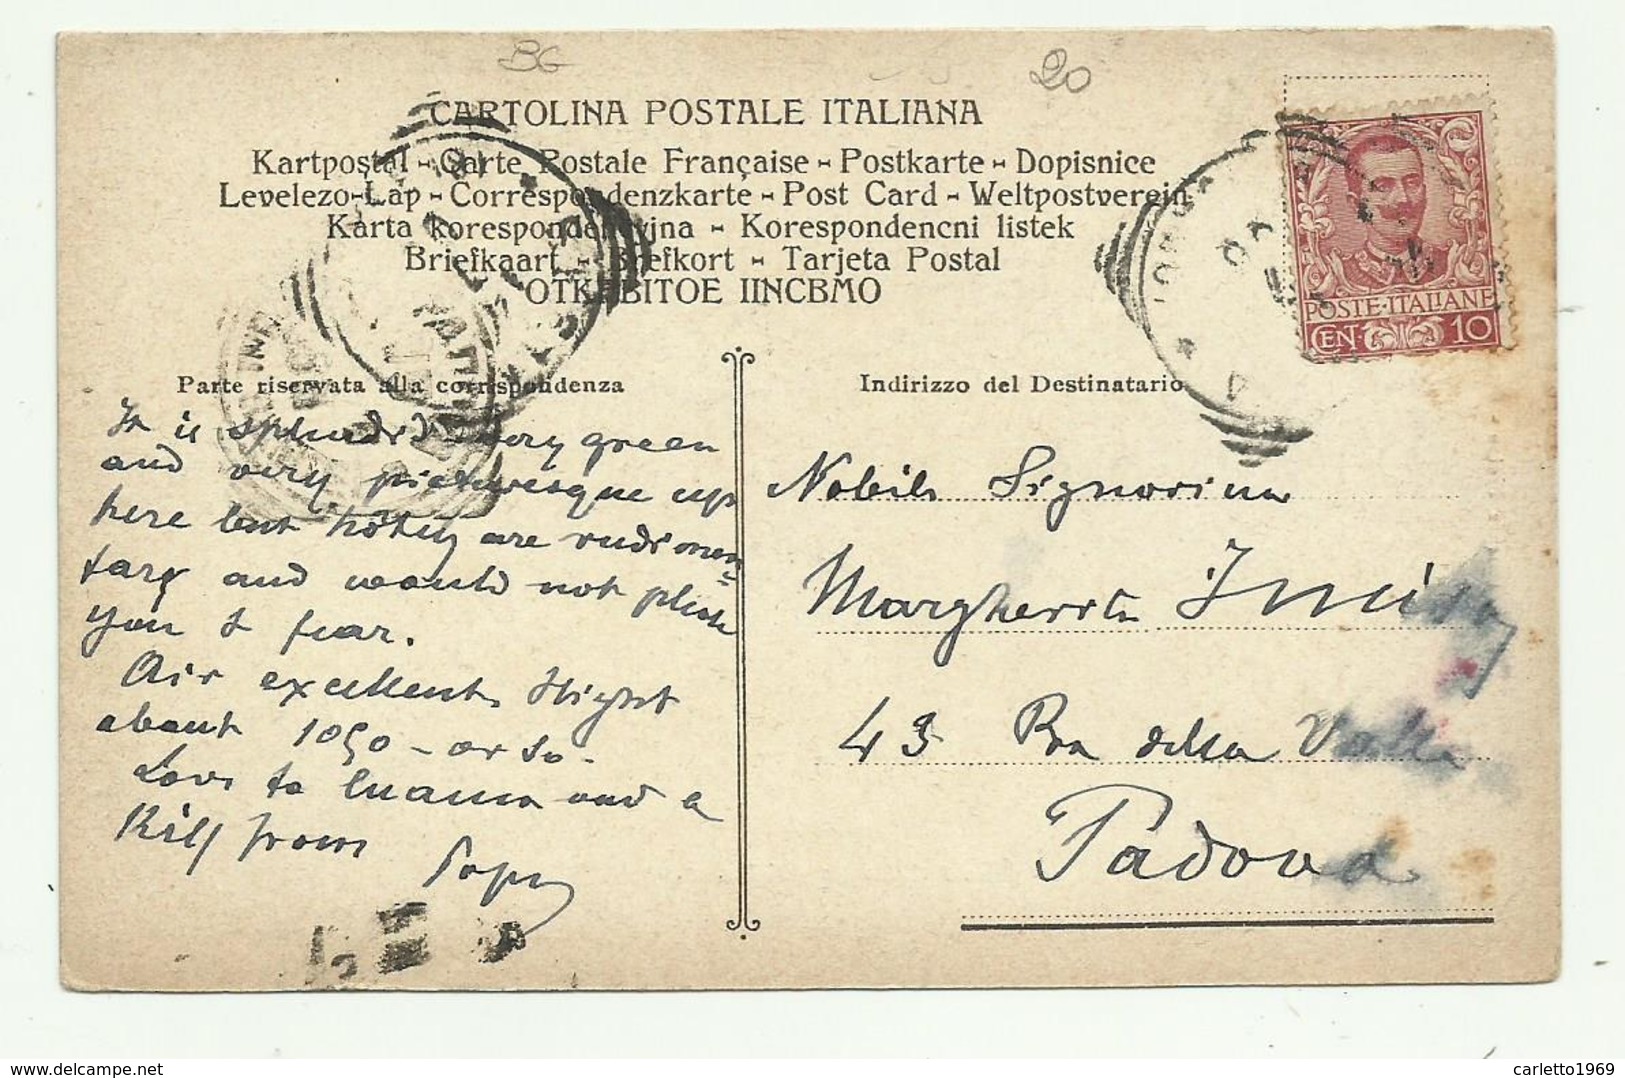 BG
20
CARTOLINA POSTALE ITALIANA
Kartpostal - Carte Postale Française - Postkarte - Dopisnice
Levelezo-Lap - Correspondenzkarte - Post Card - Weltpostverein
Karta korespondencyjna - Korespondencni listek
Briefkaart - Brefkort - Tarjeta Postal
OTKPBITOE IINCBMO
POSTE·ITALIANE
CEN· 10
Parte riservata alla corrispondenza
It is splendid very green
and very picturesque up
here but are rudimen=
tary and would not please
you I fear.
Air excellent Hight
about 1050 - or so -
Love to and a
Kiss from
Papy
Indirizzo del Destinatario
Nobile Signorina
Margherita
43 della Valle
Padova
carletto1969